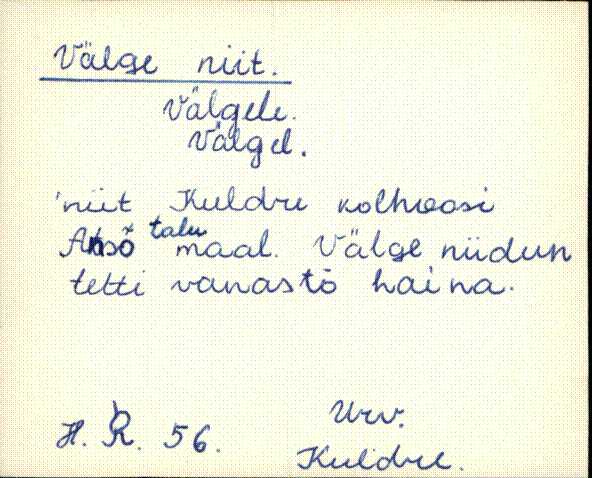 Välge niit.
Välgele.
Välgel.
'niit Kuldre kolhoosi
talu
maal. Välge niidun
tetti vanastõ haina.
H. R. 56.
Urv.
Kuldre.